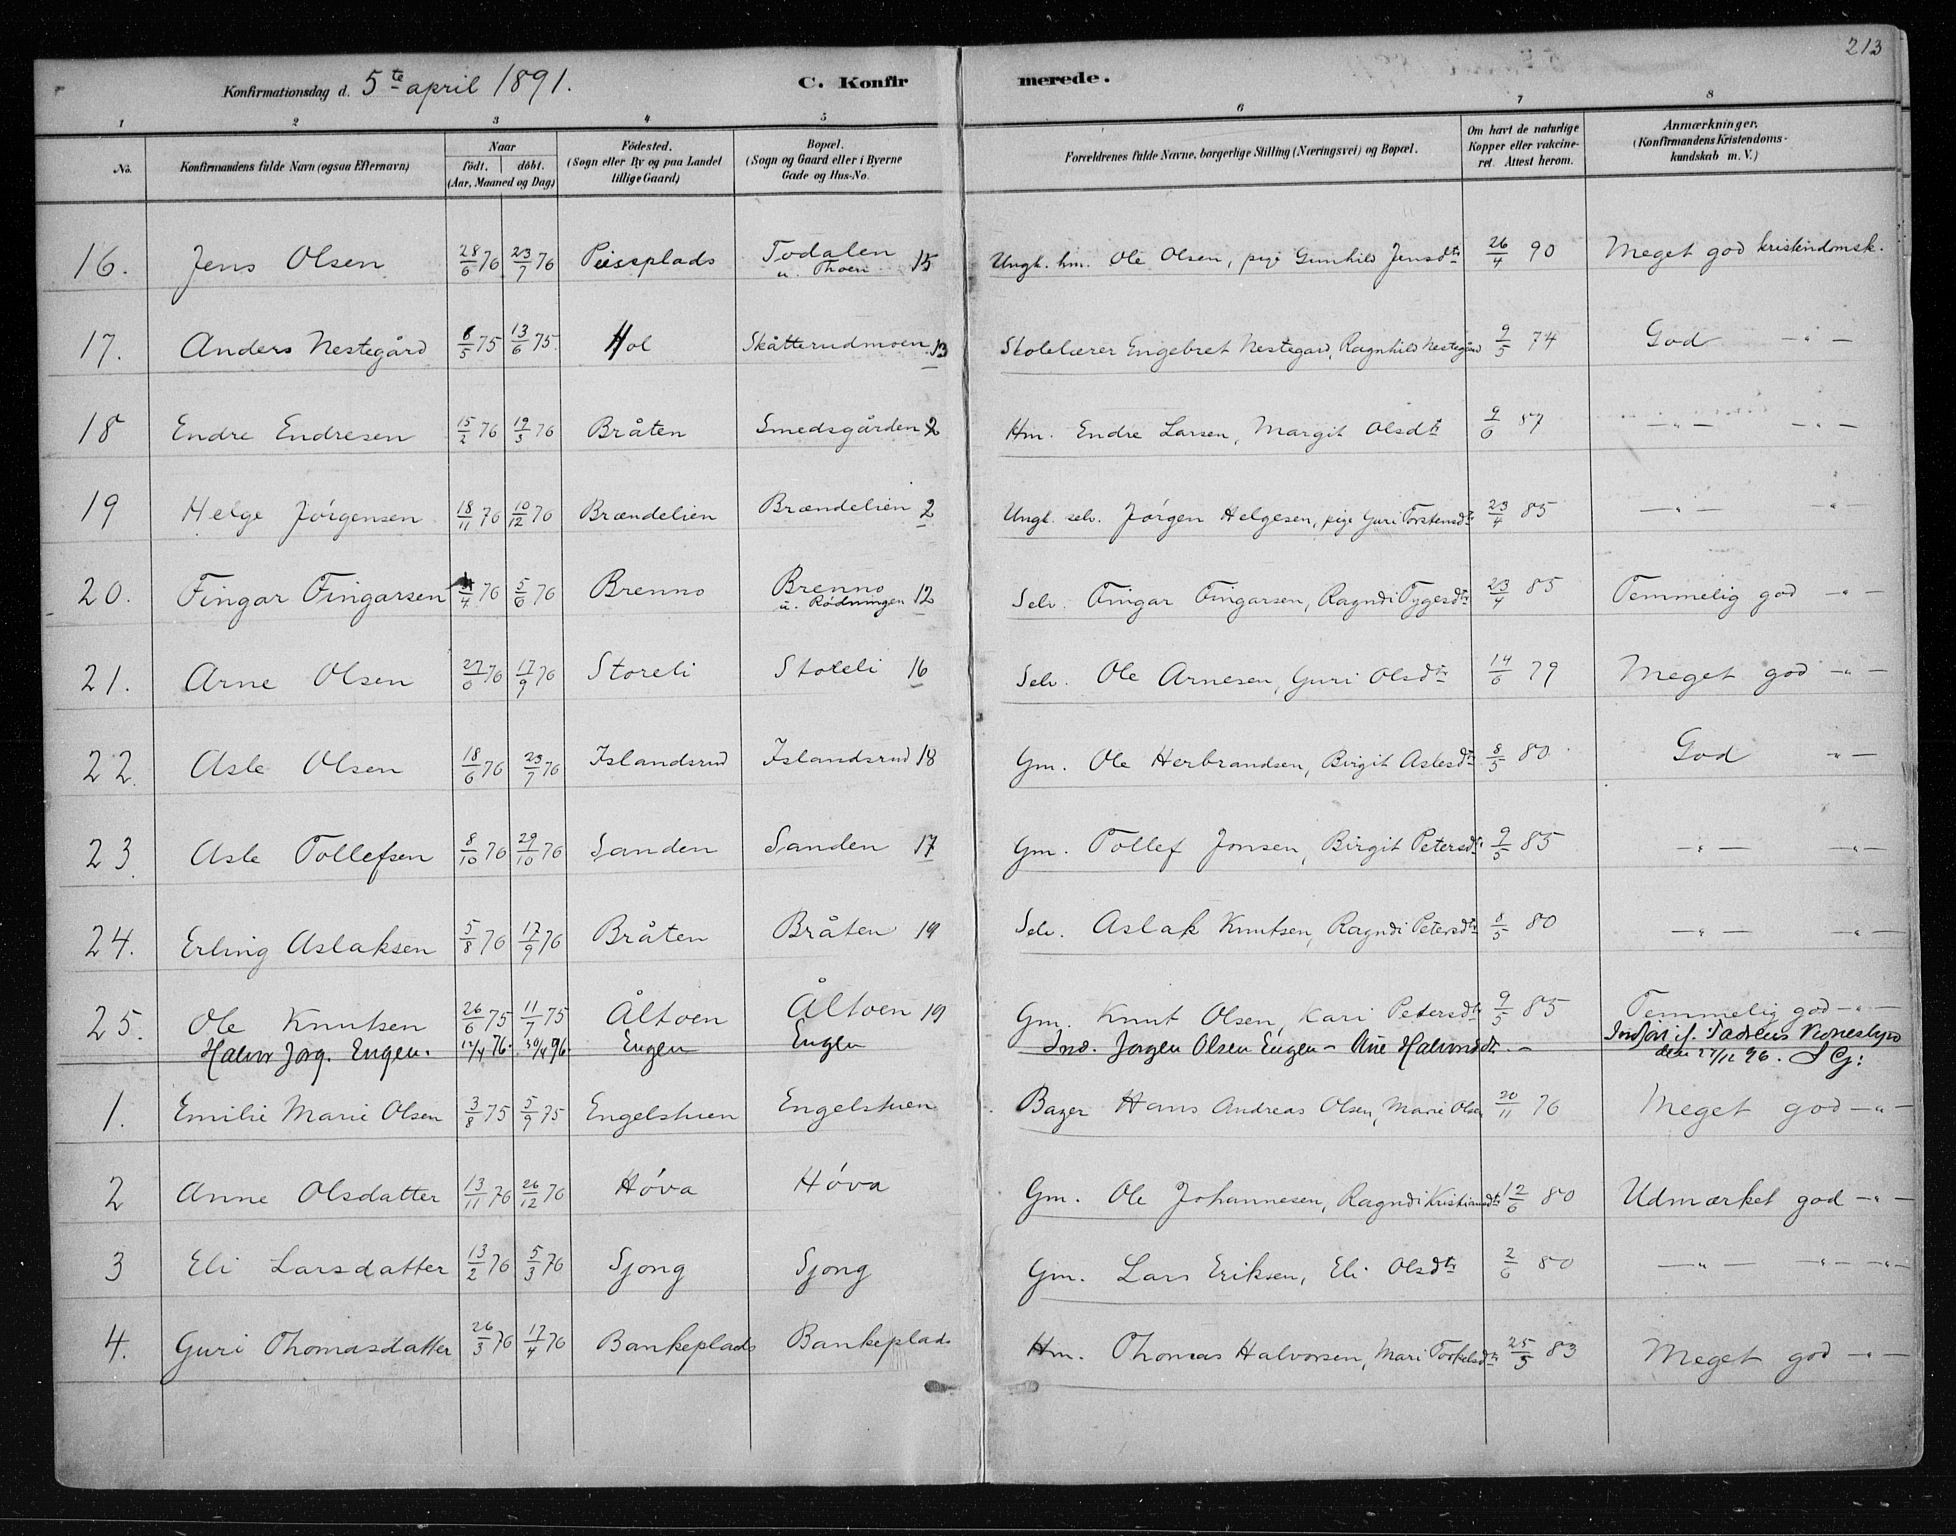 213
Konfirmationsdag d. 5te april 1891. C. Konfirmerede.
1 2 3 4 5 6 7 8
No. Konfirmandens fulde Navn (ogsaa Efternavn) Naar født. døbt. (Aar, Maaned og Dag) Fødested. (Sogn eller By og paa Landet tillige Gaard) Bopæl. (Sogn og Gaard eller i Byerne Gade og Hus-No. Forældrenes fulde Navne, borgerlige Stilling (Næringsvei) og Bopæl. Om havt de naturlige Kopper eller vakcineret. Attest herom. Anmærkninger. (Konfirmandens Kristendomskundskab m. V.)
16. Jens Olsen 28/6 76 23/7 76 Todalen u. Thoen 15 Ungk. hm. Ole Olsen, pige Gunhild Jensdtr 26/4 90 Meget god kristendomsk.
17. Anders Nestegård 6/5 75 13/6 75. Hol Skåtterudmoen 13 Skolelærer Engebret Nestegard, Ragnhild Nestegård 9/5 74 God -"-
18 Endre Endresen 15/2 76 19/3 76 Bråten Smedsgården 2 Hm. Endre Larsen, Margit Olsdtr 9/6 87 -"- -"-
19 Helge Jörgensen 18/11 76 10/12 76 Brændelien Brændelien 2 Ungk. selv. Jörgen Helgesen, pige Guri Torstensdtr 23/4 85 -"- "-
20. Fingar Fingarsen /4 76 5/6 76 Brenno Brenno u. Rødningen 12 Selv. Fingar Fingarsen, Ragndi Tygesdtr 23/4 85 Temmelig god -"-
21. Arne Olsen 27/6 76 17/9 76 Storeli Storeli 16 Selv. Ole Arnesen, Guri Olsdtr 14/6 79 Meget god -"-
22. Asle Olsen 18/6 76 23/7 76 Islandsrud Islandsrud 18 Gm. Ole Herbrandsen, Birgit Aslesdtr 8/5 80 God "-
23. Asle Tollefsen 8/10 76 29/10 76 Sanden Sanden 17 Gm. Tollef Jonsen, Birgit Petersdtr 9/5 85 -"- -"-
24. Erling Aslaksen 5/8 76 17/9 76 Bråten Bråten 19 Selv. Aslak Knutsen, Ragndi Petersdtr 8/5 80 -"- -"-
25. Ole Knutsen 26/6 75 11/7 75 Åltoen Åltoen 19 Gm. Knut Olsen, Kari Petersdtr 9/5 85 Temmelig god -"-
Halvor Jörg. Eugen. 12/4 76. 30/4 96 Eugen Eugen Ind. Jørgen Olsen Eugen - Ane Halvorsdtr. - Indført if.
den 27/12 96. S G:
1. Emilie Marie Olsen 3/8 75 5/9 75 Engelstuen Engelstuen Bager Hans Andreas Olsen, Marie Olsen 20/11 76 Meget god -"-
2 Anne Olsdatter 13/11 76 26/12 76 Høva Høva Gm. Ole Johannesen, Ragndi Kristiansdtr 12/6 80 Udmærket god -"-
3 Eli Larsdatter 13/2 76 5/3 76 Sjong Sjong Gm. Lars Eriksen, Eli Olsdtr 2/6 80 -"- -"- -"-
4. Guri Thomasdatter 26/3 76 17/4 76 Bankeplads Bankeplads Hm. Thomas Halvorsen, Mari Torkelsdtr 25/5 83 Meget god -"-